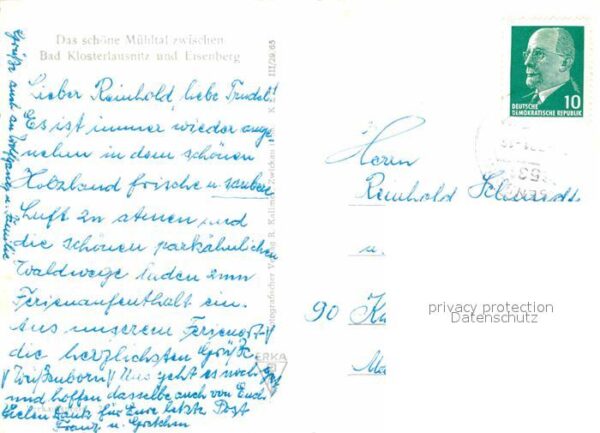 Das schöne Mühltal zwischen
Bad Klosterlausnitz und Eisenberg
III/29/65
Lieber Reinhold, liebe Trudel!
Es ist immer wieder ange-
nehm in dem schönen
Holzland frische u. saubere
Luft zu atmen und
die schönen parkähnlichen
Waldwege laden zum
Ferienaufenthalt ein.
Aus unserem Ferienort
die herzlichsten Grüße
(Weißenborn) Uns geht es noch gut
und hoffen dasselbe auch von Euch
Vielen Dank für Eure letzte Post
Franz u. Gretchen
Grüße auch an Wolfgang u. Familie
Fotografischer Verlag R. Zwickau
ERKA
DEUTSCHE
DEMOKRATISCHE REPUBLIK
10
Herrn
Reinhold Schmidt
u.
90 K
Ma
privacy protection
Datenschutz